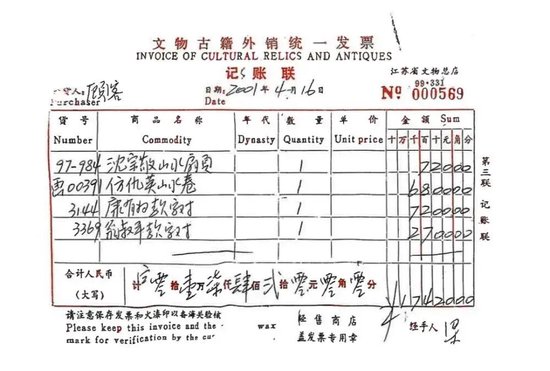 文物古籍外销统一发票
INVOICE OF CULTURAL RELICS AND ANTIQUES
记账联
江苏省文物总店
货人: 顾客
Purchaser
日期: 2001年4月16日
Date
99·331
№ 000569
货号 商品名称 年代 数量 单价 金额 Sum
Number Commodity Dynasty Quantity Unit price 十万千百十元角分
97-984 沈宗敬山水扇页 1 72000
00391 仿仇英山水卷 1 680000
3144 康有为款字对 1 720000
3369 翁叔平款字对 1 270000
第三联 记账联
合计人民币
(大写)
计 零拾壹万柒仟肆佰贰拾零元零角零分
¥1742000
请注意保存发票和火漆印以备海关验核
Please keep this invoice and the wax
mark for verification by the
经售商店
盖发票专用章
经手人 梁